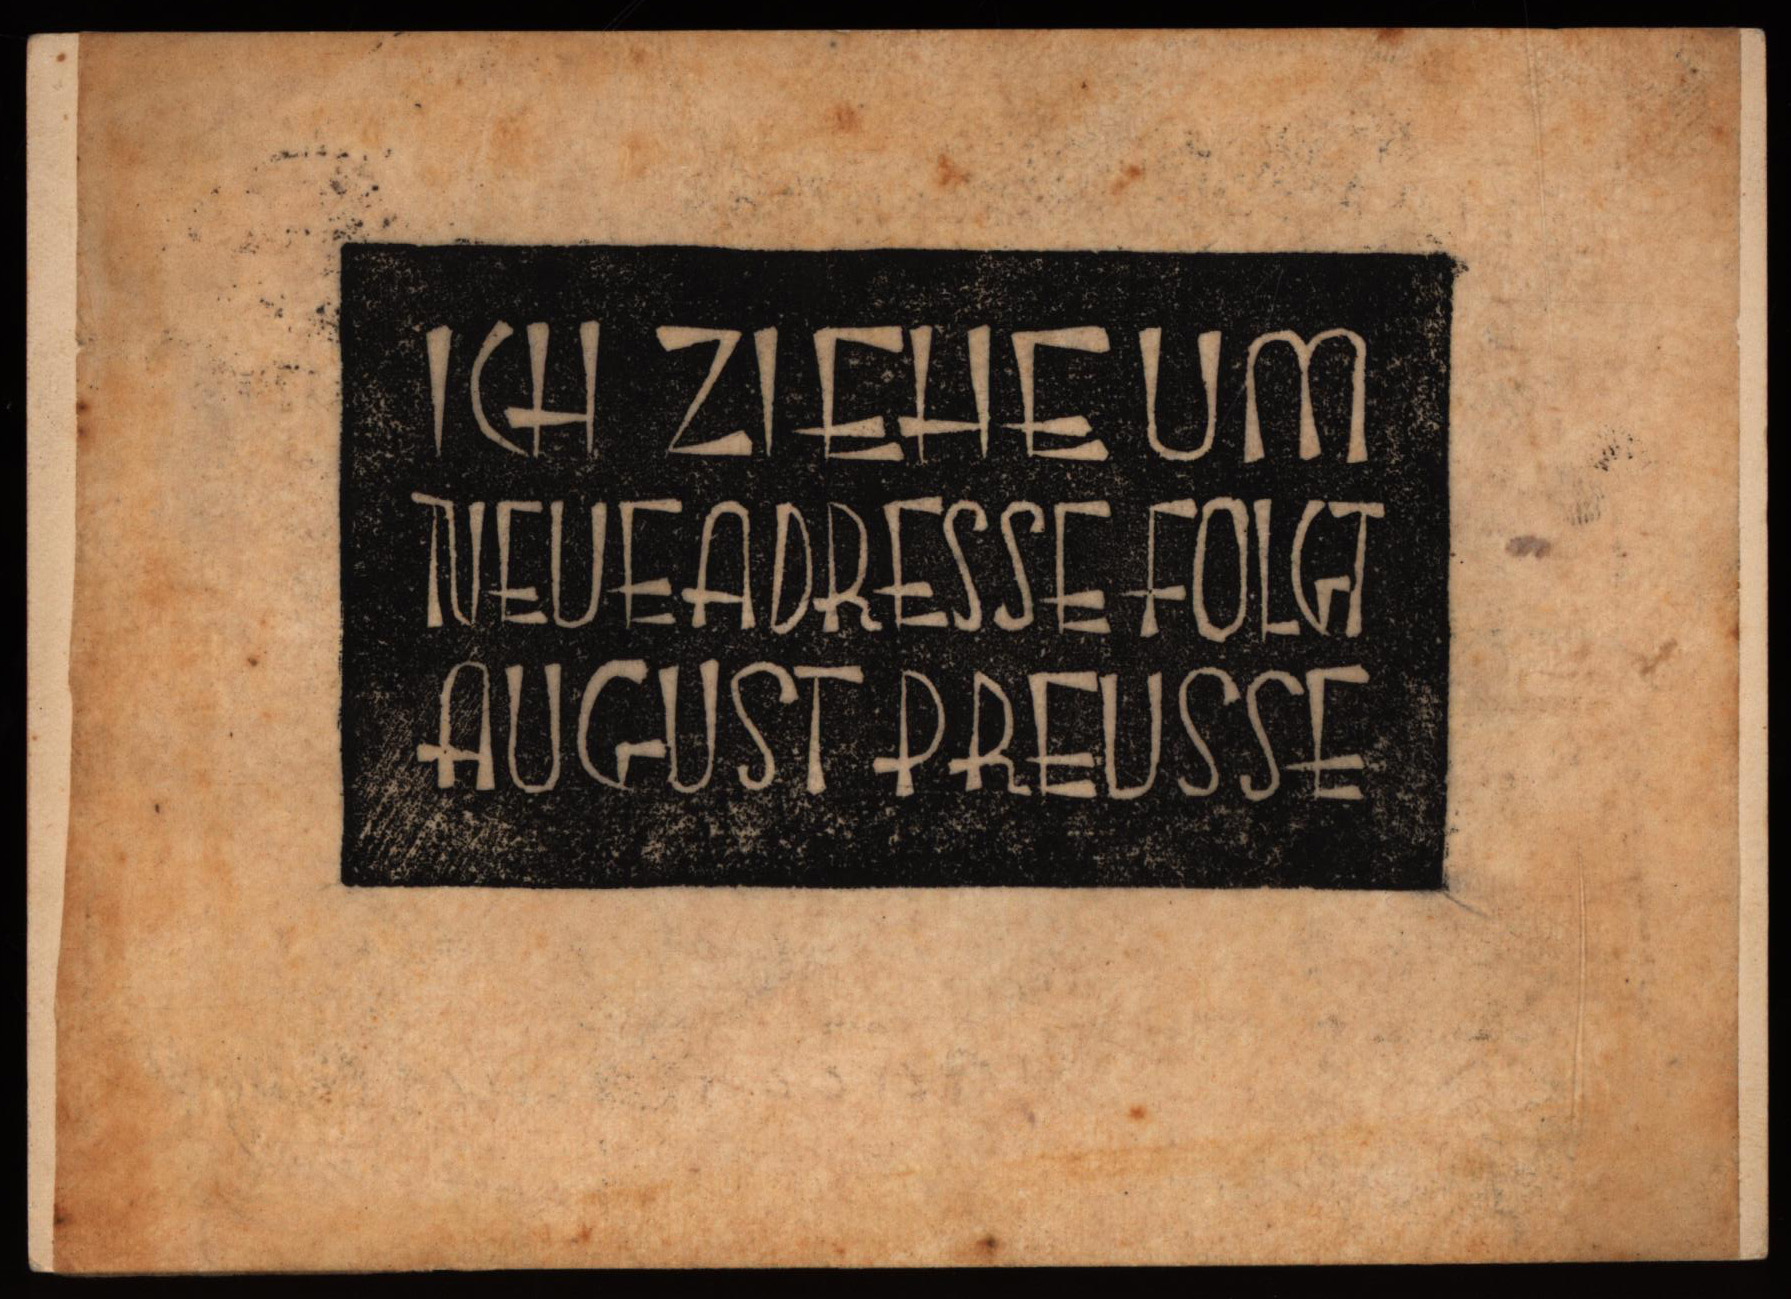 ICH ZIEHE UM
NEUE ADRESSE FOLGT
AUGUST PREUSSE